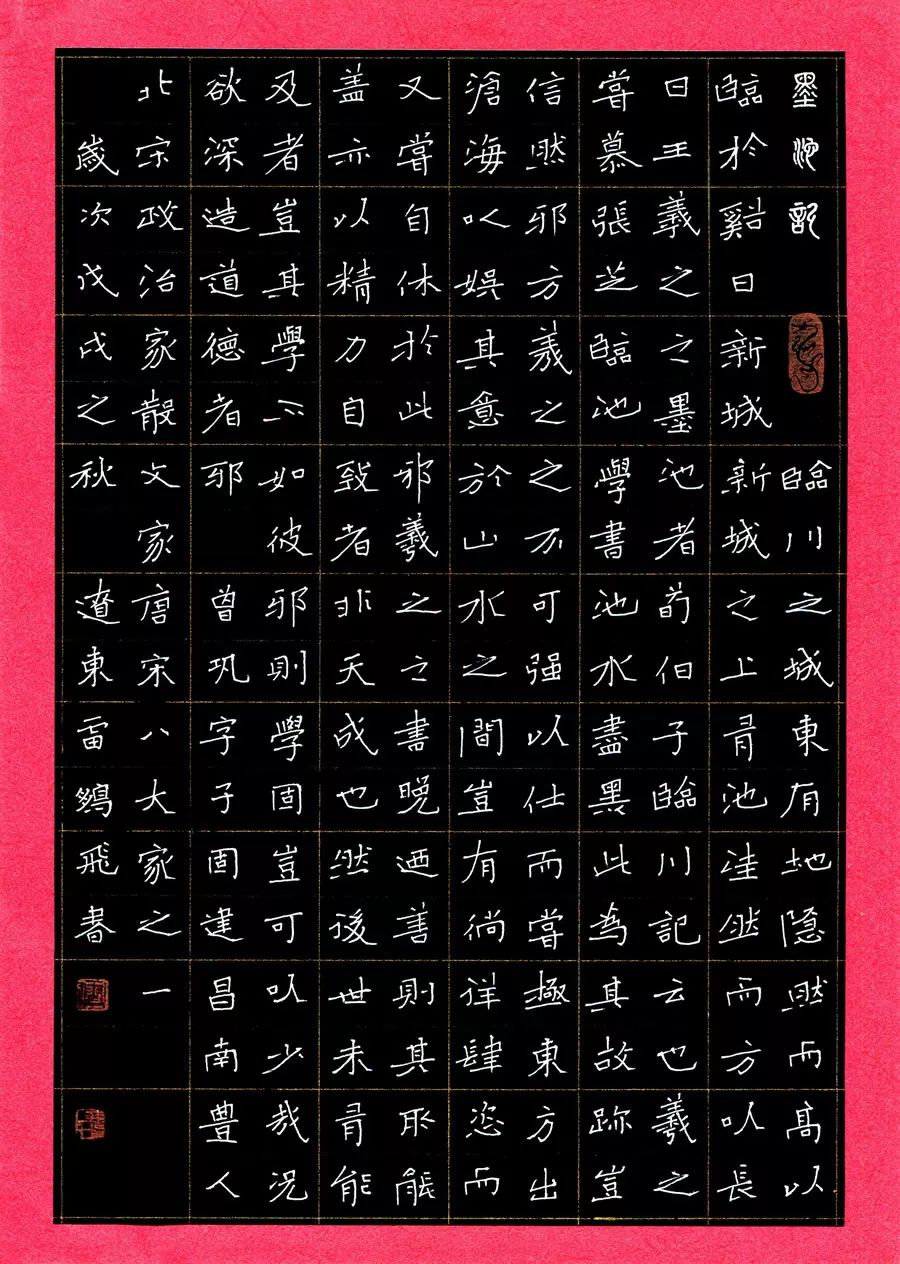 墨池記 臨川之城東有地隱然而高以
臨於谿曰新城新城之上有池洼然而方以長
曰王羲之之墨池者荀伯子臨川記云也羲之
嘗慕張芝臨池學書池水盡黑此為其故跡豈
信然邪方羲之之不可强以仕而嘗極東方出
滄海以娛其意於山水之間豈有徜徉肆恣而
又嘗自休於此邪羲之之書晚迺善則其所能
盖亦以精力自致者非天成也然後世未有能
及者豈其學不如彼邪則學固豈可以少哉况
欲深造道德者邪 曾巩字子固建昌南豊人
北宋政治家散文家唐宋八大家之一
歲次戊戌之秋 遼東雷飛書